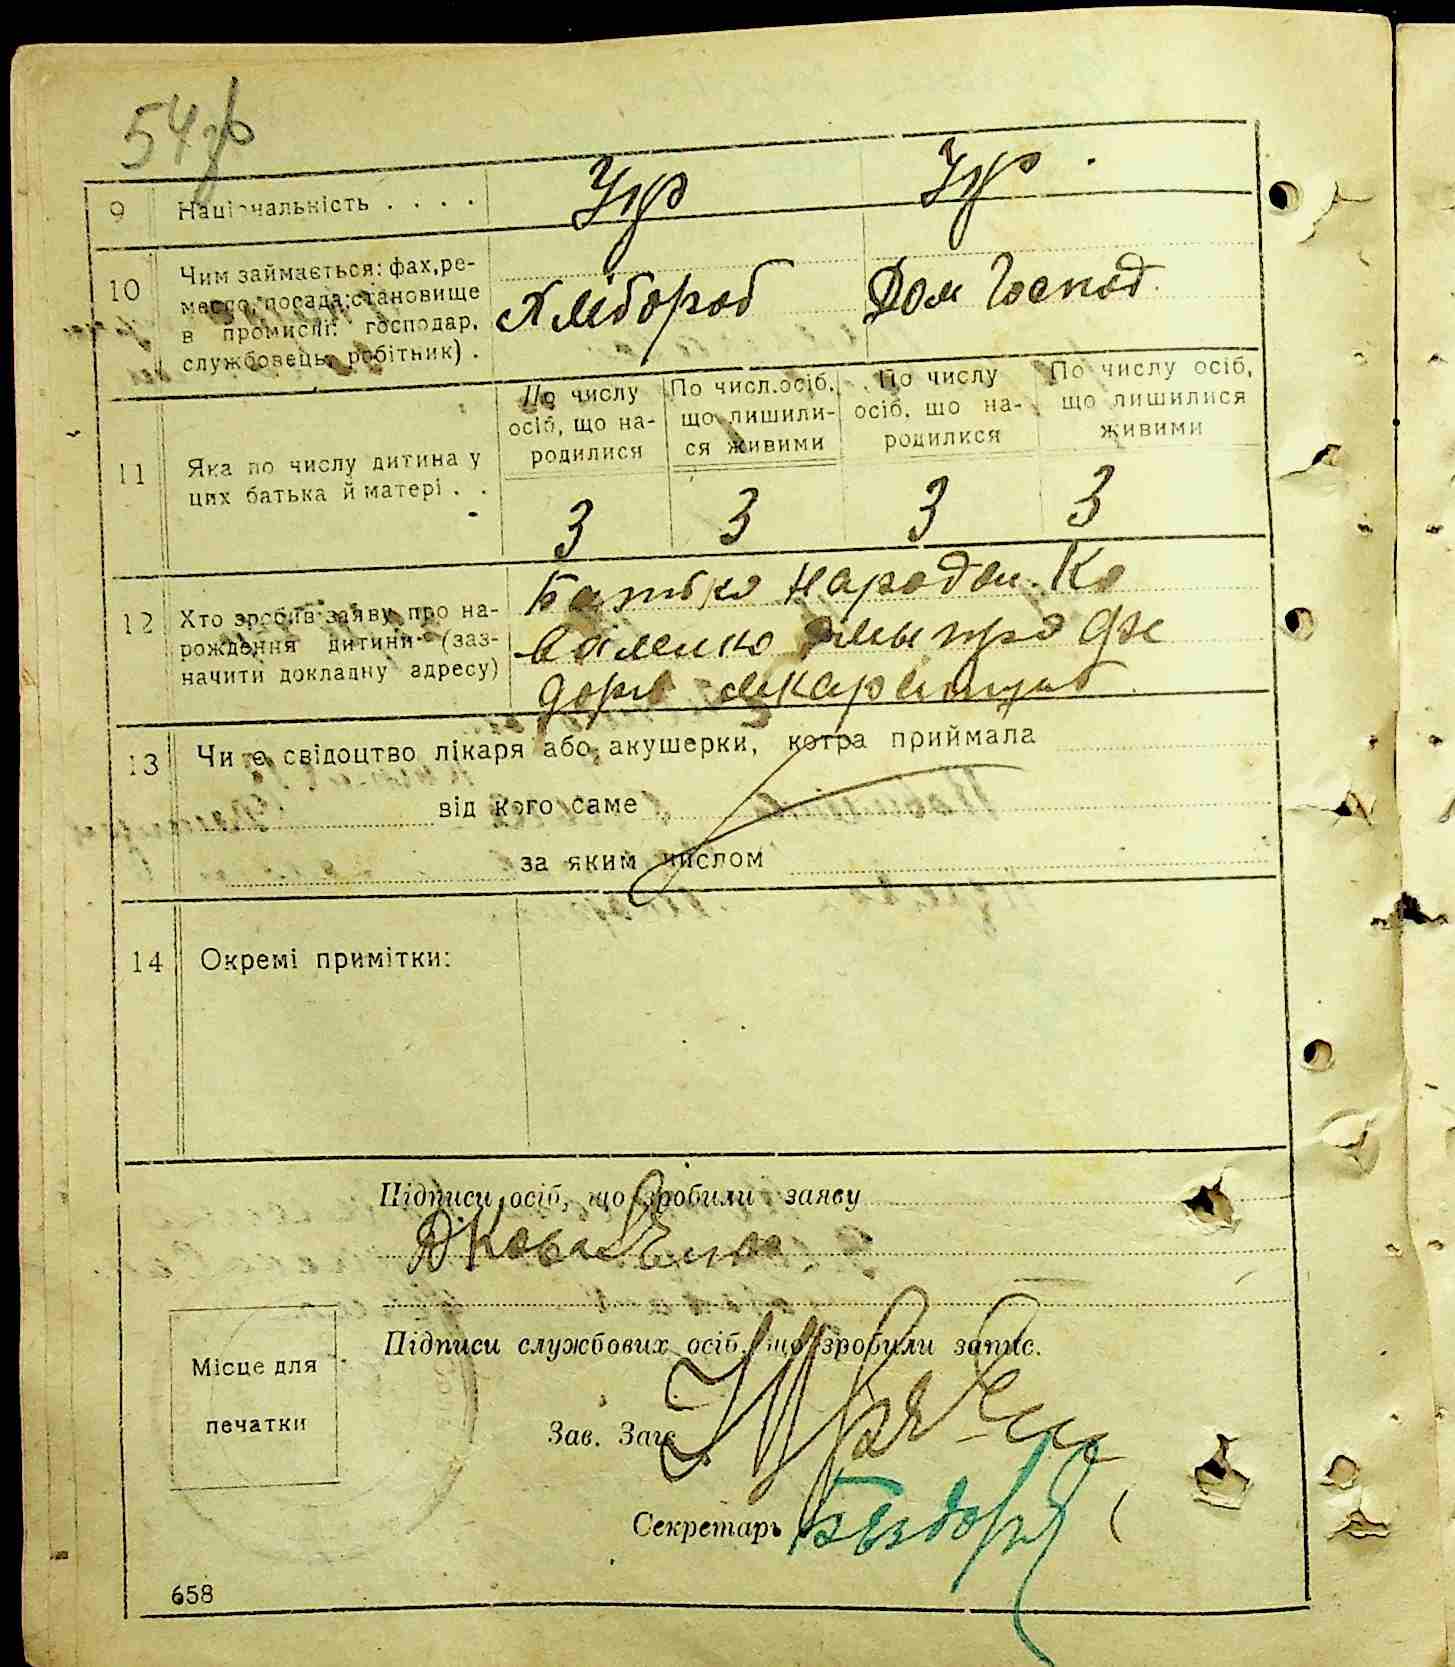 54
9 Національність . . . . Укр Укр.
10 Чим займається: фах, ре-
месло, посада; становище
в промислі: господар,
службовець, робітник) .
Хлібороб Дом Господ.
11 Яка по числу дитина у
цих батька й матері . .
По числу
осіб, що на-
родилися
По числ. осіб,
що лишили-
ся живими
По числу
осіб, що на-
родилися
По числу осіб,
що лишилися
живими
3 3 3 3
12 Хто зробив заяву про на-
рождення дитини (заз-
начити докладну адресу)
Батько народан. Ко
валенко
13 Чи є свідоцтво лікаря або акушерки, котра приймала
від кого саме
за яким числом
14 Окремі примітки:
Підписи осіб, що зробили заяву
ДКоваленко
Підписи службових осіб, що зробили запис.
Місце для
печатки
Зав. Загс
Секретарь
658